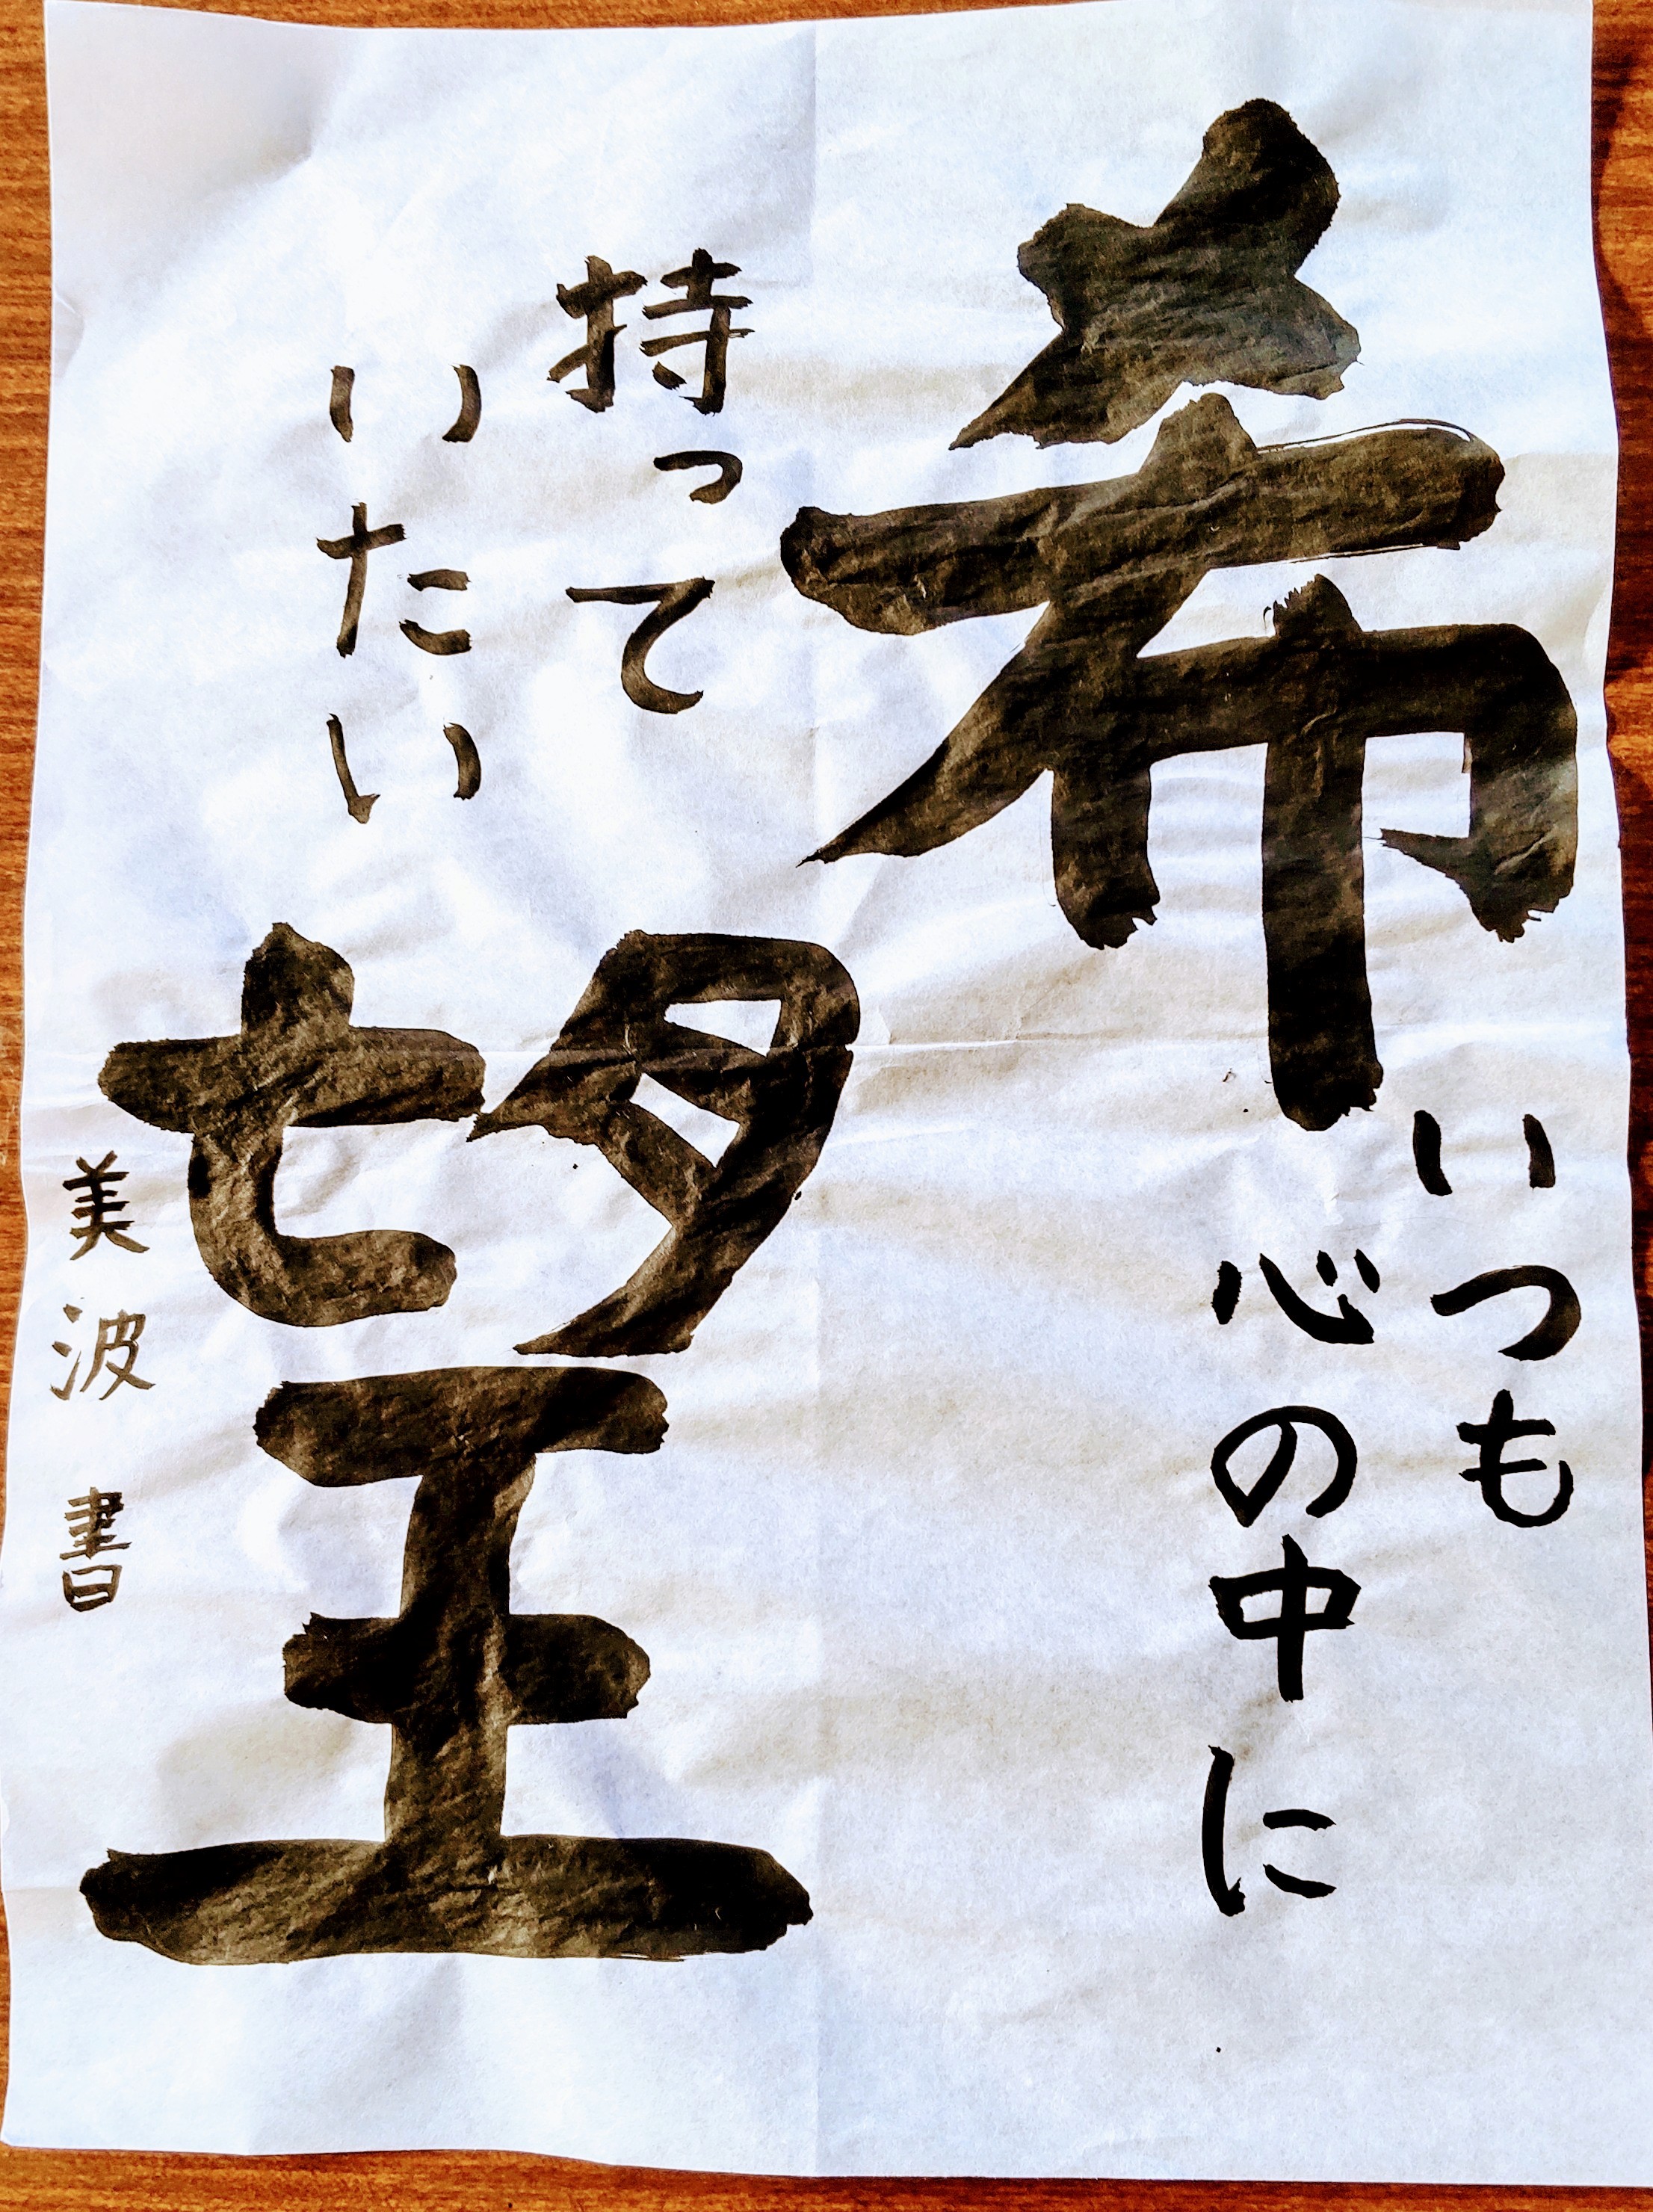 希望
いつも
心の中に
持って
いたい
美波書